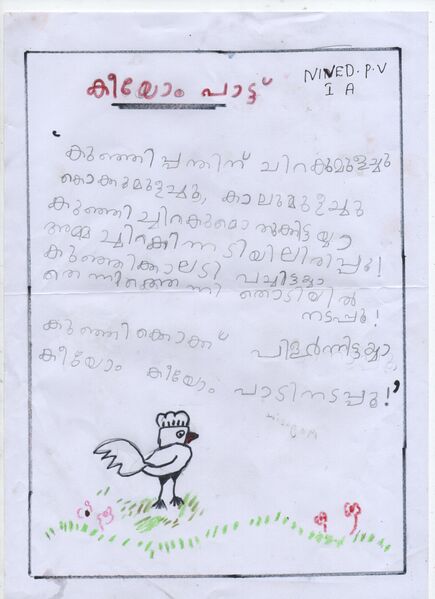 കീയോം പാട്ട്
NINED.P.V
I A
കുഞ്ഞിപ്പന്തിന് ചിറകുമുളച്ചു
കൊക്കുമുളച്ചു, കാലുമുളച്ചു
കുഞ്ഞിച്ചിറകുമൊതുക്കിട്ടയ്യാ
അമ്മച്ചിറകിന്നടിയിലിരിപ്പൂ!
കുഞ്ഞിക്കാലടി വച്ചിട്ടയ്യാ
തെന്നിത്തെന്നി തൊടിയിൽ
നടപ്പൂ!
കുഞ്ഞിക്കൊക്ക് പിളർന്നിട്ടയ്യാ,
കീയോം കീയോം പാടിനടപ്പൂ!'